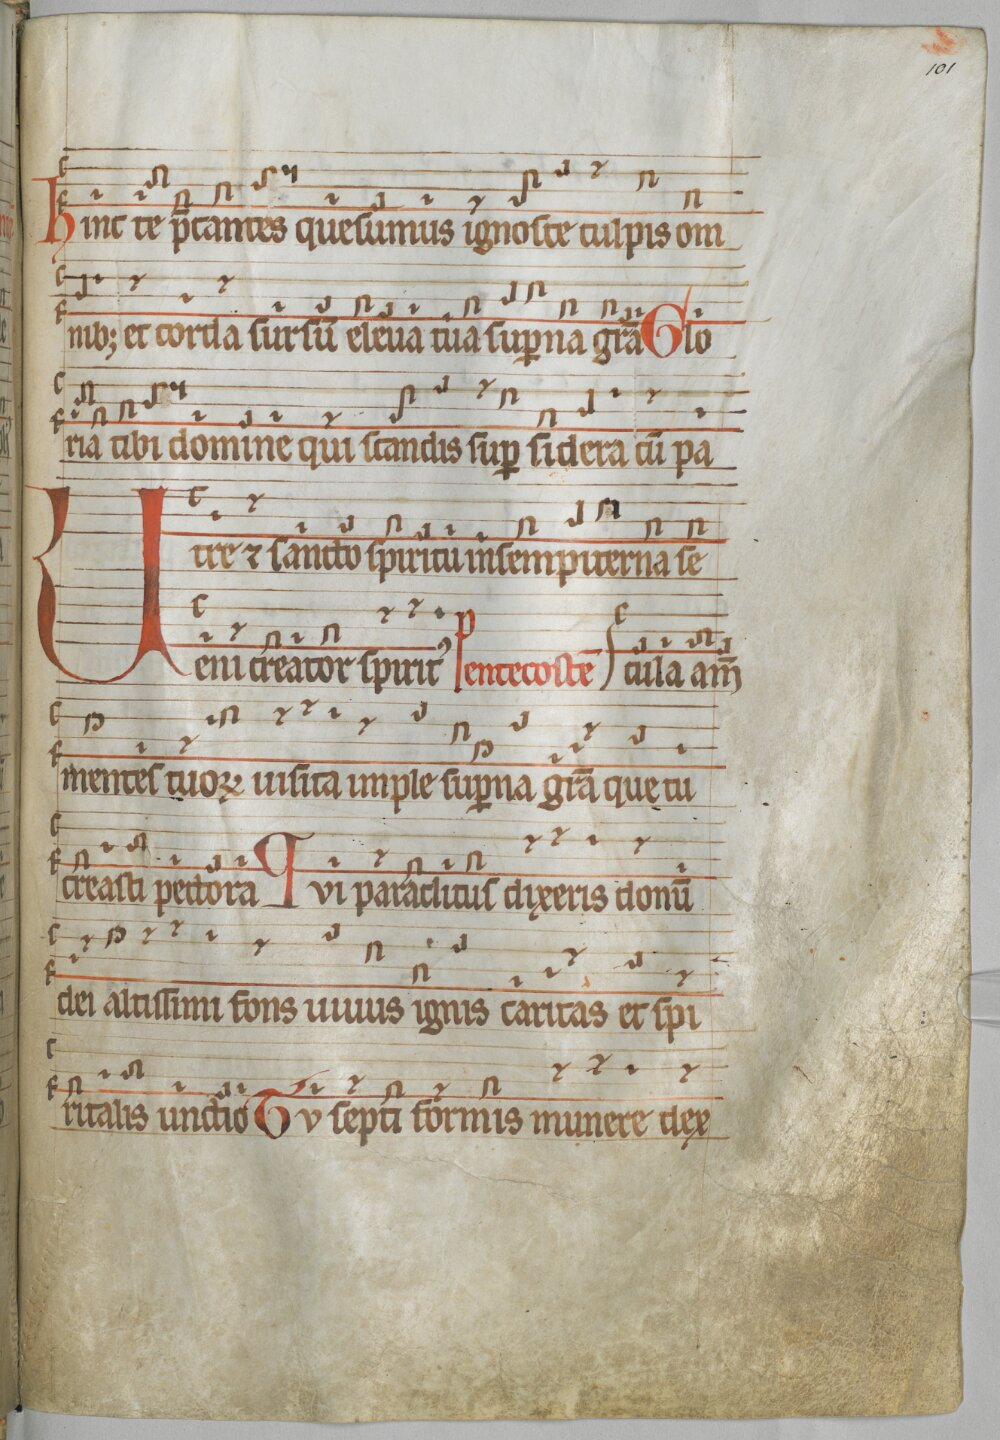 101
Hinc te p̄cantes quesumus ignosce culpis om
nib; et corda sursū eleua tua sup̄na gr̄a Glo
ria tibi domine qui scandis sup̄ sidera cū pa
tre ⁊ sancto spiritu in sempiterna se
Ueni creator spirit9 Pentecostē cula am̄
mentes tuoꝝ uisita imple sup̄na gr̄a que tu
creasti pectora Qvi paraclitus dixeris donū
dei altissimi fons uiuus ignis caritas et spi
ritalis unctio Tv septi formis munere dex